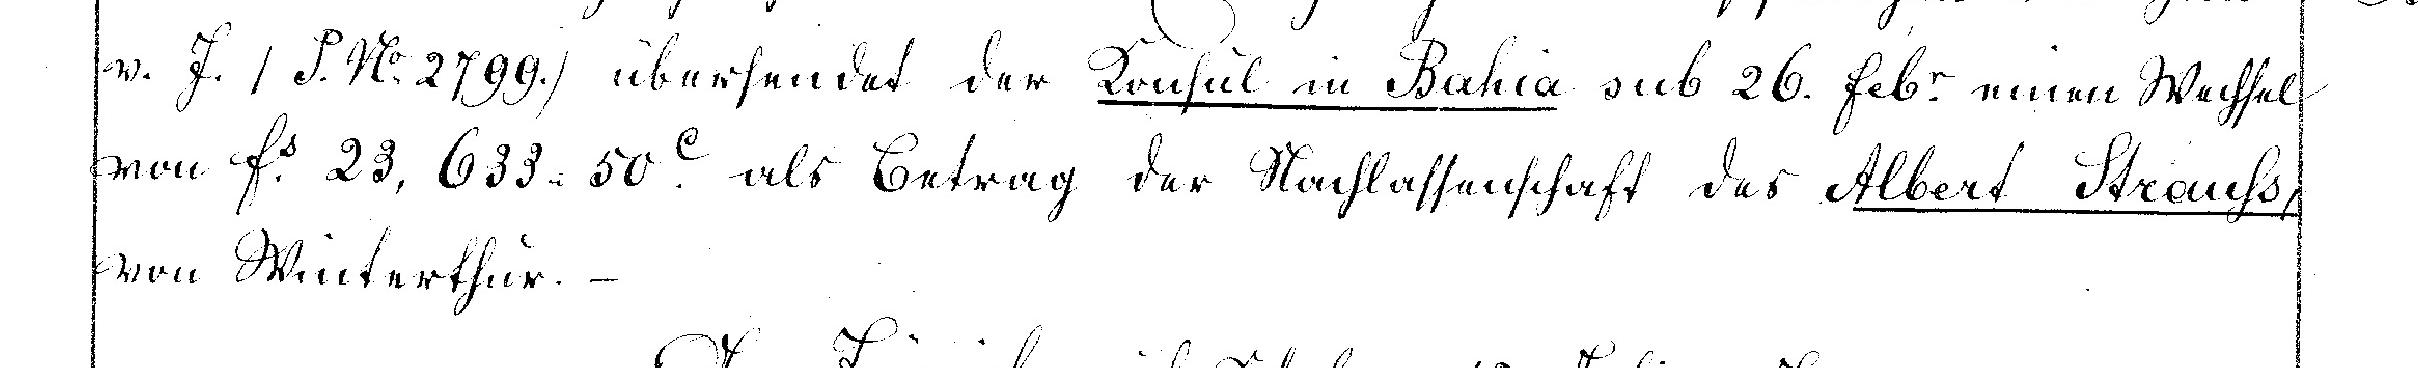 v. J. / P. No. 2799.) übersendet der Konsul in Bahia sub 26. Febr. einen Wechsel
von fs. 23,633. 50 c. als Betrag der Nachlassenschaft des Albert Strauss,
von Winterthur. –